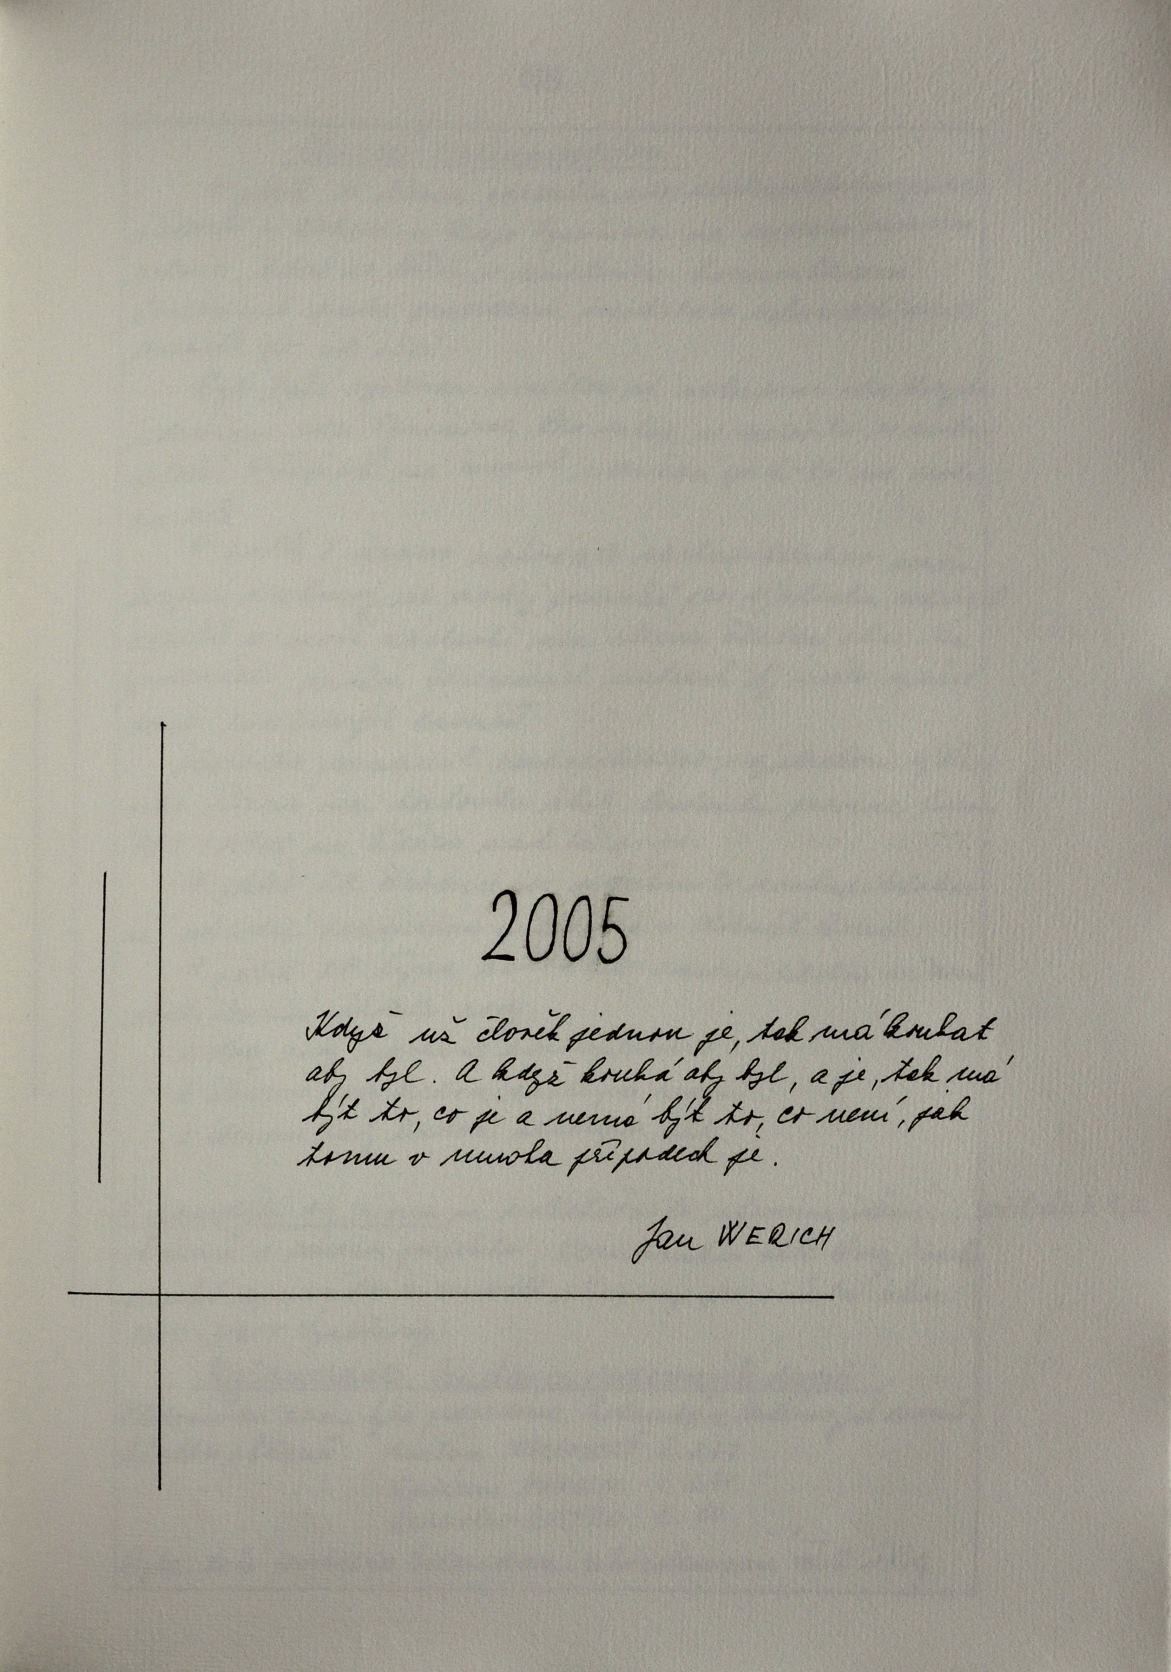 2005
Když už člověk jednou je, tak má koukat
aby byl. A když kouká aby byl, a je, tak má
být to, co je a nemá být to, co není, jak
tomu v mnoha případech je.
Jan WERICH